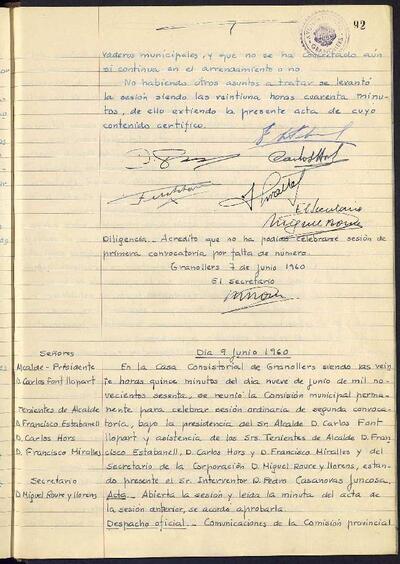 92
vaderos municipales, y que no se ha concertado aún
si continua en el arrendamiento o no.
No habiendo otros asuntos a tratar se levantó
la sesión siendo las veintiuna horas cuarenta minu-
tos, de ello extiendo la presente acta de cuyo
contenido certifico.
El Secretario
Diligencia.- Acredito que no ha podido celebrarse sesión de
primera convocatoria por falta de numero.
Granollers 7 de junio 1960
El secretario
Señores
Día 9 junio 1960
Alcalde-Presidente
D. Carlos Font llopart
Tenientes de Alcalde
D. Francisco Estabanell
D. Carlos Hors
D. Francisco Miralles
Secretario
D. Miguel Roure y llorens
En la Casa Consistorial de Granollers siendo las vein-
te horas quince minutos del dia nueve de junio de mil no-
vecientos sesenta, se reunió la Comisión municipal perma-
nente para celebrar sesión ordinaria de segunda convoca-
toria, bajo la presidencia del Sr. Alcalde D. Carlos Font
llopart y asistencia de los Srs. Tenientes de Alcalde D. Fran-
cisco Estabanell, D. Carlos Hors y D. Francisco Miralles y del
Secretario de la Corporación D. Miguel Roure y llorens, estan-
do presente el Sr. Interventor D. Pedro Casanovas Juncosa.
Acta.- Abierta la sesión y leida la minuta del acta de
la sesión anterior, se acordo aprobarla.
Despacho oficial.- Comunicaciones de la Comisión provincial